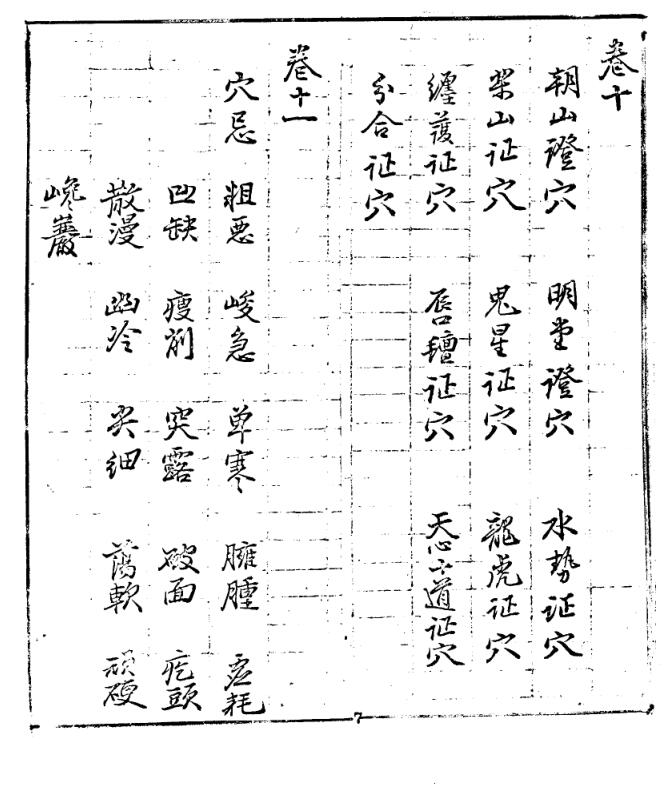 卷十
朝山證穴 明堂證穴 水势证穴
樂山证穴 鬼星证穴 龍虎证穴
纏護证穴 唇氊证穴 天心十道证穴
分合证穴
卷十一
穴忌 粗恶 峻急 单寒 臃腫 虚耗
凹缺 瘦削 突露 破面 疙頭
散漫 幽冷 尖细 蕩軟 頑硬
巉巖
7